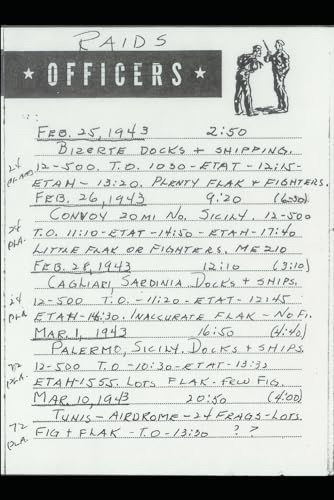 RAIDS
★ OFFICERS ★
FEB. 25, 1943 2:50
BIZERTE DOCKS + SHIPPING.
24 PLANES 12-500. T.O. 1030 - ETAT - 12:15-
ETAH - 13:20. PLENTY FLAK + FIGHTERS.
FEB. 26, 1943 9:20 (6:30)
CONVOY 20 MI NO. SICILY. 12-500
24 PLA. T.O. 11:10 - ETAT - 14:50 - ETAH - 17:40
LITTLE FLAK OR FIGHTERS. ME 210
FEB. 28, 1943 12:10 (3:10)
CAGLIARI, SARDINIA DOCKS + SHIPS.
24 PLA 12-500 T.O. - 11:20 - ETAT - 12:45
ETAH - 14:30. INACCURATE FLAK - NO FI.
MAR. 1, 1943 16:50 (4:40)
PALERMO, SICILY. DOCKS + SHIPS.
72 PLA. 12-500 T.O - 10:30 - ETAT - 13:32
ETAH 1555. LOTS FLAK - FEW FIG.
MAR. 10, 1943 20:50 (4:00)
TUNIS - AIRDROME - 24 FRAGS - LOTS
72 PLA. FIG + FLAK - T.O - 13:30 ? ?